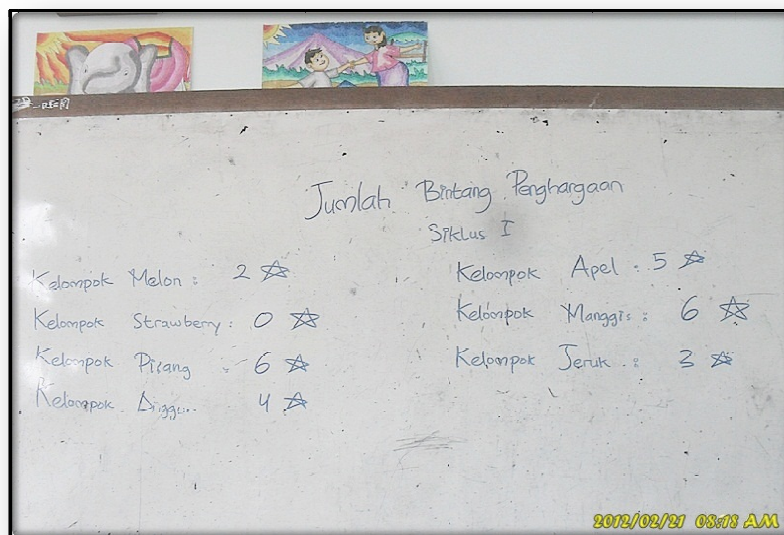 Jumlah Bintang Penghargaan
Siklus I
Kelompok Melon : 2 ☆
Kelompok Strawberry : 0 ☆
Kelompok Pisang : 6 ☆
Kelompok Anggur 4 ☆
Kelompok Apel : 5 ☆
Kelompok Manggis : 6 ☆
Kelompok Jeruk : 3 ☆
2012/02/21 08:18 AM